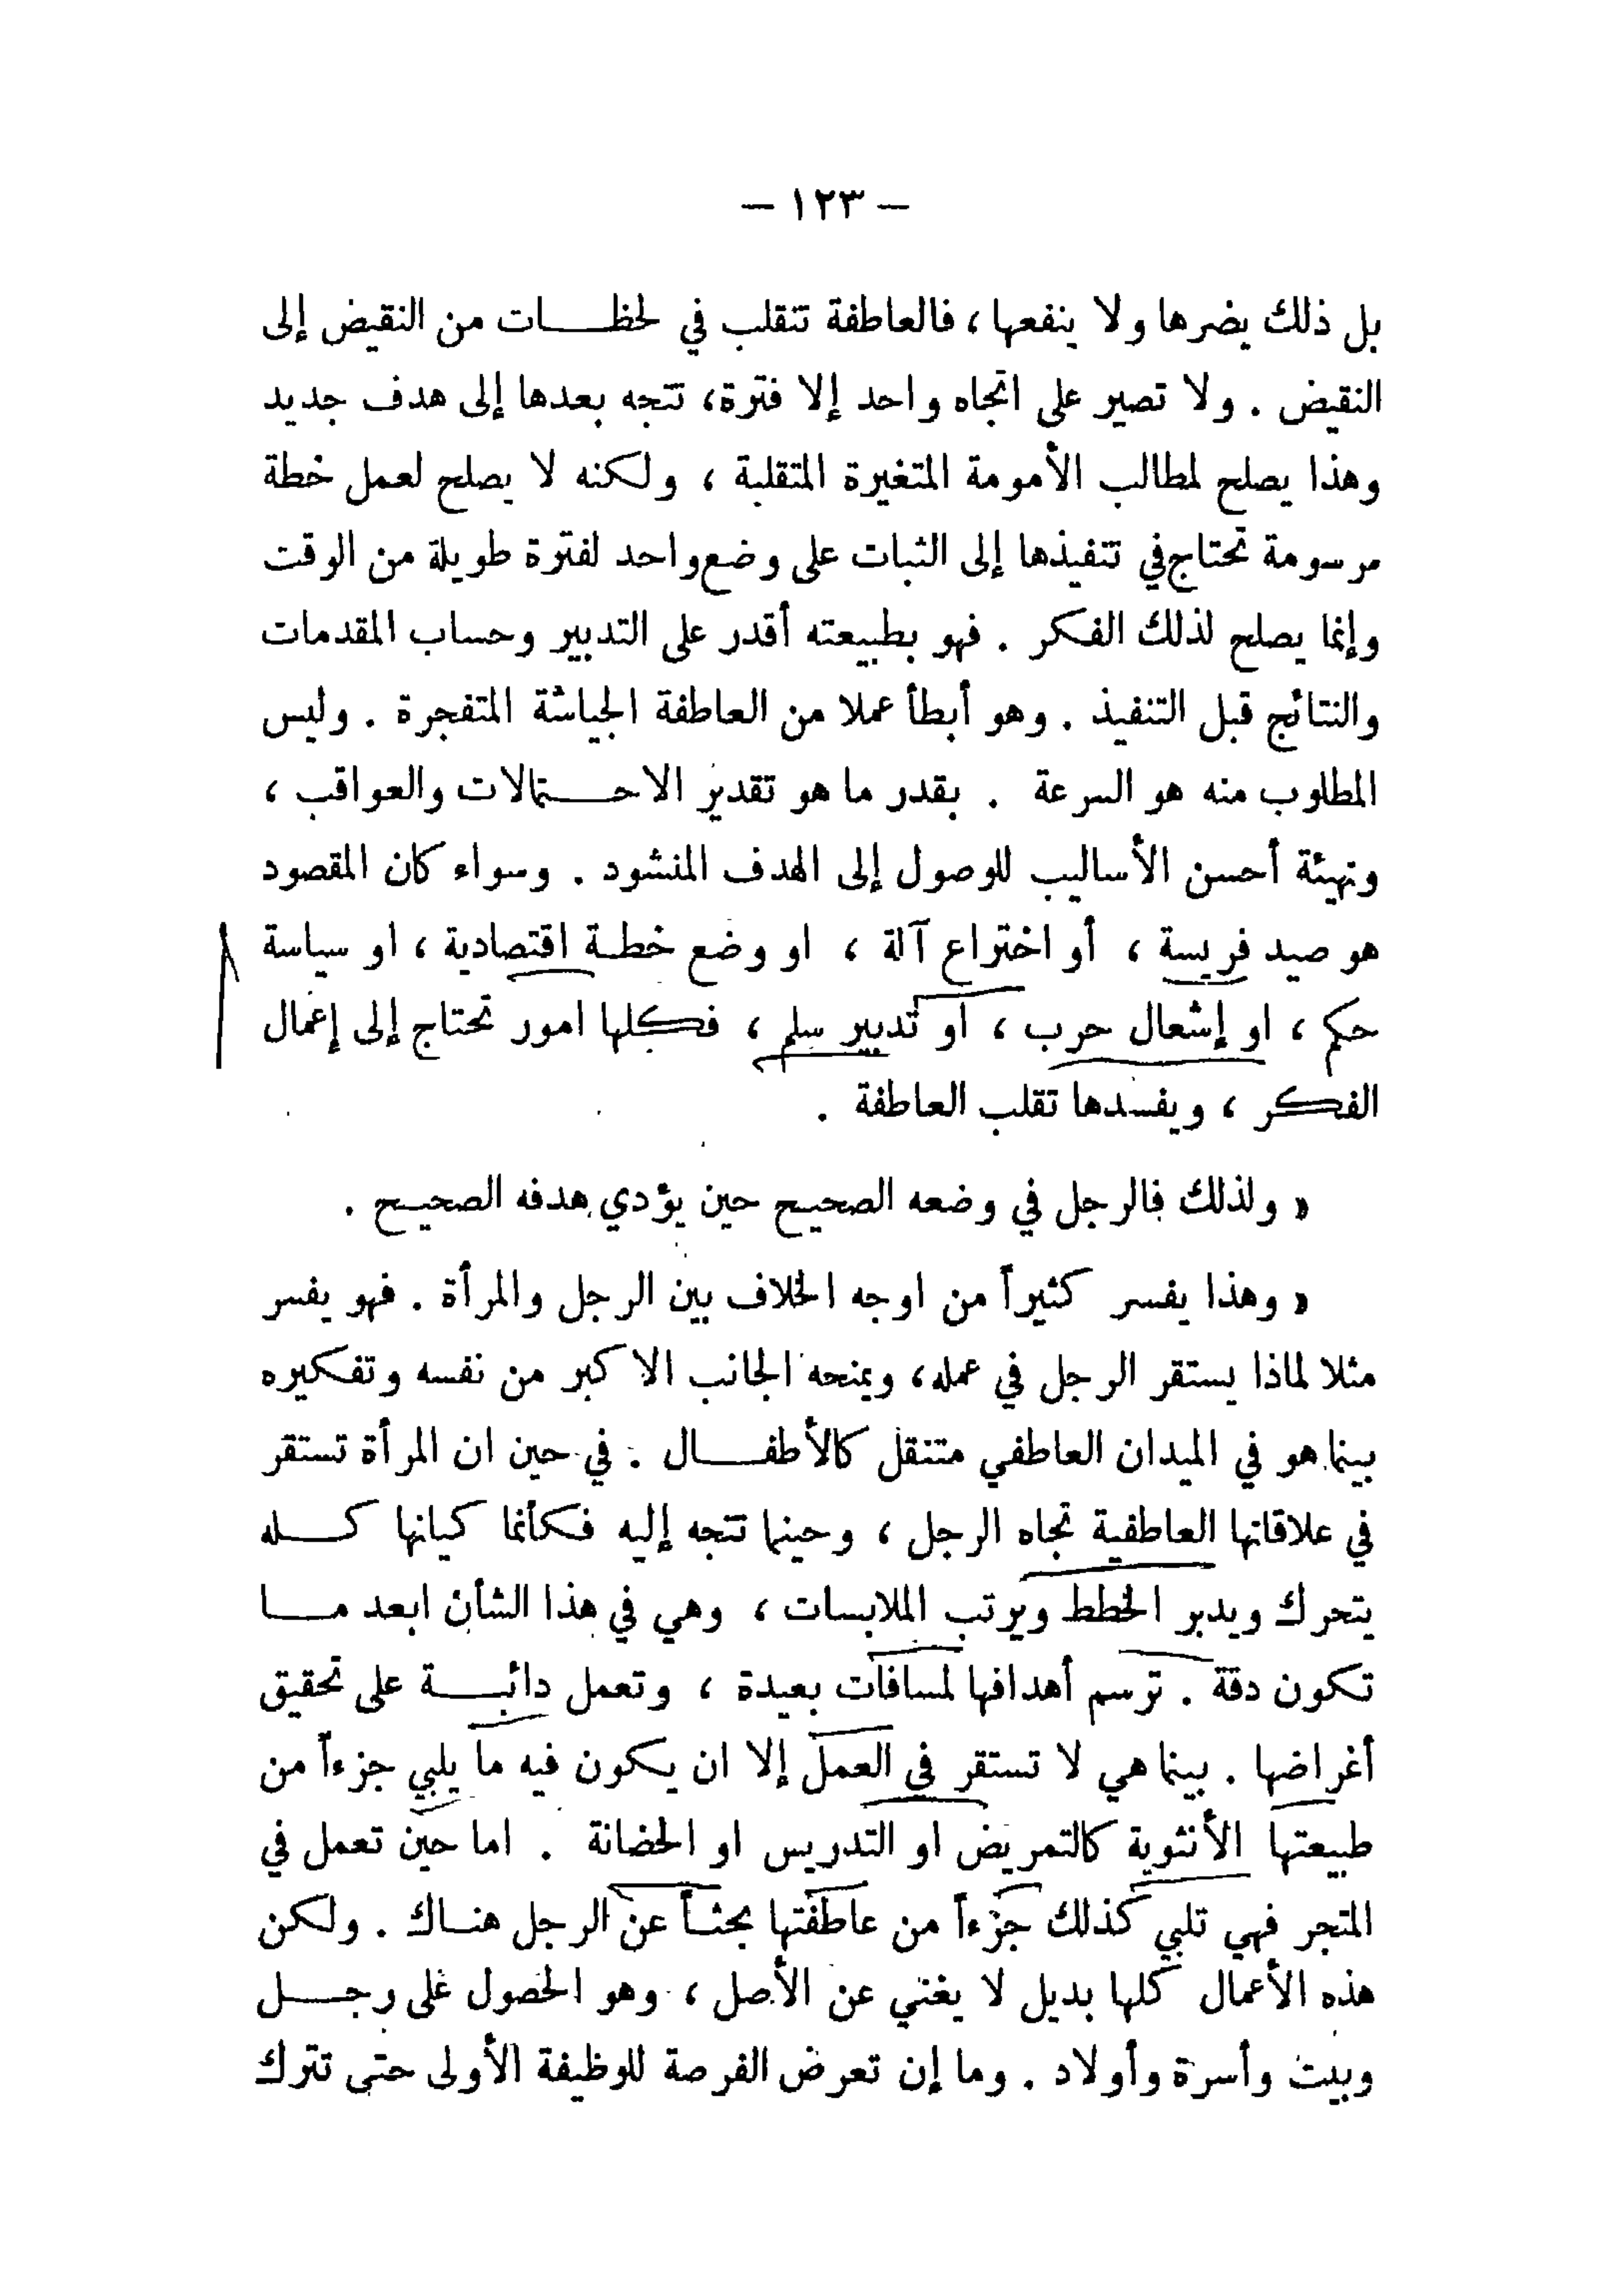 – ١٢٣ –
بل ذلك يضرها ولا ينفعها ، فالعاطفة تتقلب في لحظات من النقيض إلى
النقيض . ولا تصير على اتجاه واحد إلا فترة، تتجه بعدها إلى هدف جديد
وهذا يصلح لمطالب الأمومة المتغيرة المتقلبة ، ولكنه لا يصلح لعمل خطة
مرسومة تحتاج في تنفيذها إلى الثبات على وضع واحد لفترة طويلة من الوقت
وإنما يصلح لذلك الفكر . فهو بطبيعته أقدر على التدبير وحساب المقدمات
والنتائج قبل التنفيذ . وهو أبطأ عملا من العاطفة الجياشة المتفجرة . وليس
المطلوب منه هو السرعة . بقدر ما هو تقدير الاحتمالات والعواقب ،
وتهيئة أحسن الأساليب للوصول إلى الهدف المنشود . وسواء كان المقصود
هو صيد فريسة ، أو اختراع آلة ، او وضع خطة اقتصادية ، او سياسة
حكم ، او إشعال حرب ، او تدبير سلم ، فكلها امور تحتاج إلى إعمال
الفكر ، ويفسدها تقلب العاطفة .
« ولذلك فالرجل في وضعه الصحيح حين يؤدي هدفه الصحيح .
« وهذا يفسر كثيراً من اوجه الخلاف بين الرجل والمرأة . فهو يفسر
مثلا لماذا يستقر الرجل في عمله، ويمنحه الجانب الاكبر من نفسه وتفكيره
بينما هو في الميدان العاطفي متنقل كالأطفال . في حين ان المرأة تستقر
في علاقاتها العاطفية تجاه الرجل ، وحينما تتجه إليه فكأنما كيانها كله
يتحرك ويدبر الخطط ويرتب الملابسات ، وهي في هذا الشأن ابعد ما
تكون دقة . ترسم أهدافها لمسافات بعيدة ، وتعمل دائبة على تحقيق
أغراضها . بينما هي لا تستقر في العمل إلا ان يكون فيه ما يلبي جزءاً من
طبيعتها الأنثوية كالتمريض او التدريس او الحضانة . اما حين تعمل في
المتجر فهي تلبي كذلك جزءاً من عاطفتها بحثاً عن الرجل هناك . ولكن
هذه الأعمال كلها بديل لا يغني عن الأصل ، وهو الحصول على رجل
وبيت وأسرة وأولاد . وما إن تعرض الفرصة للوظيفة الأولى حتى تترك